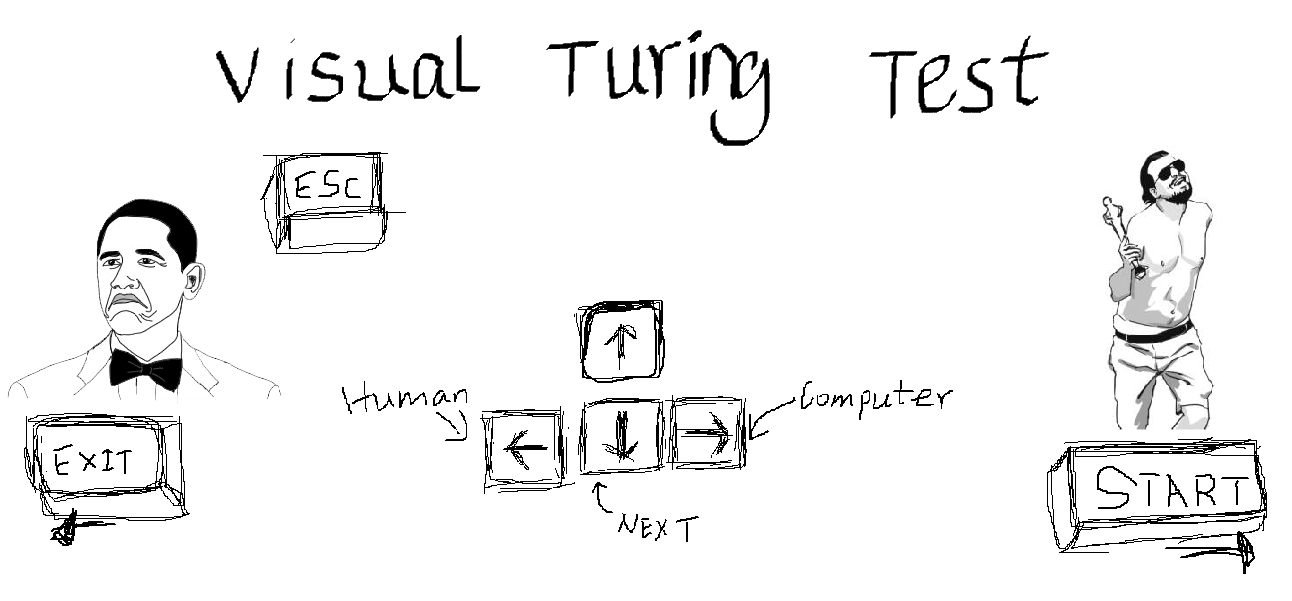 Visual Turing Test
ESC
Human
Computer
EXIT
NEXT
START